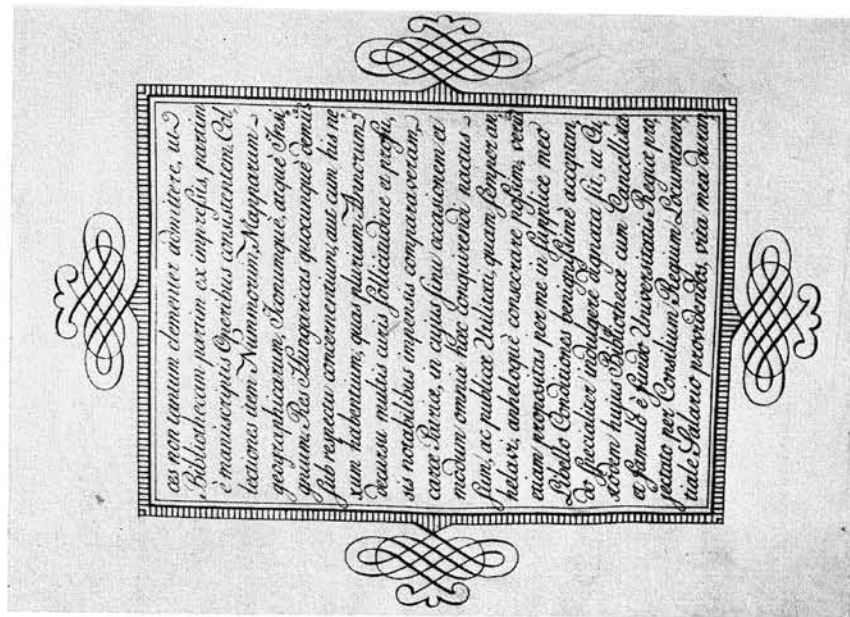 ces non tantum clementer admittere, ut
Bibliothecam partim ex impressis, partim
è manuscriptis Operibus consistentem, Col,
lectiones item Nummorum, Mapparum
geographicarum, Iconumquè, atquè Insi,
gnium, Res Hungaricas quocunquè
sub respectu concernentium, aut cum his ne
xum habentium, quas plurium Annorum
decursu multis curis sollicitudine et profu,
sis notabilibus impensis comparaveram,
caræ Patriæ, in cujus sinu occasionem et
modum omnia hæc conquirendi nactus
sum, ac publicæ Utilitati, quam semper an,
helavi, anheloquè consecrare possim,
etiam propositas per me in supplice meo
Libello Conditiones benignissimè
do specialiter indulgere dignata sit, ut Cu,
stodem hujus Bibliothecæ cum Cancellista
et famulo è fundo Universitatis Regiæ pro,
jectato per Consilium Regium Locumtenen,
tiale Salario providendos, vita mea